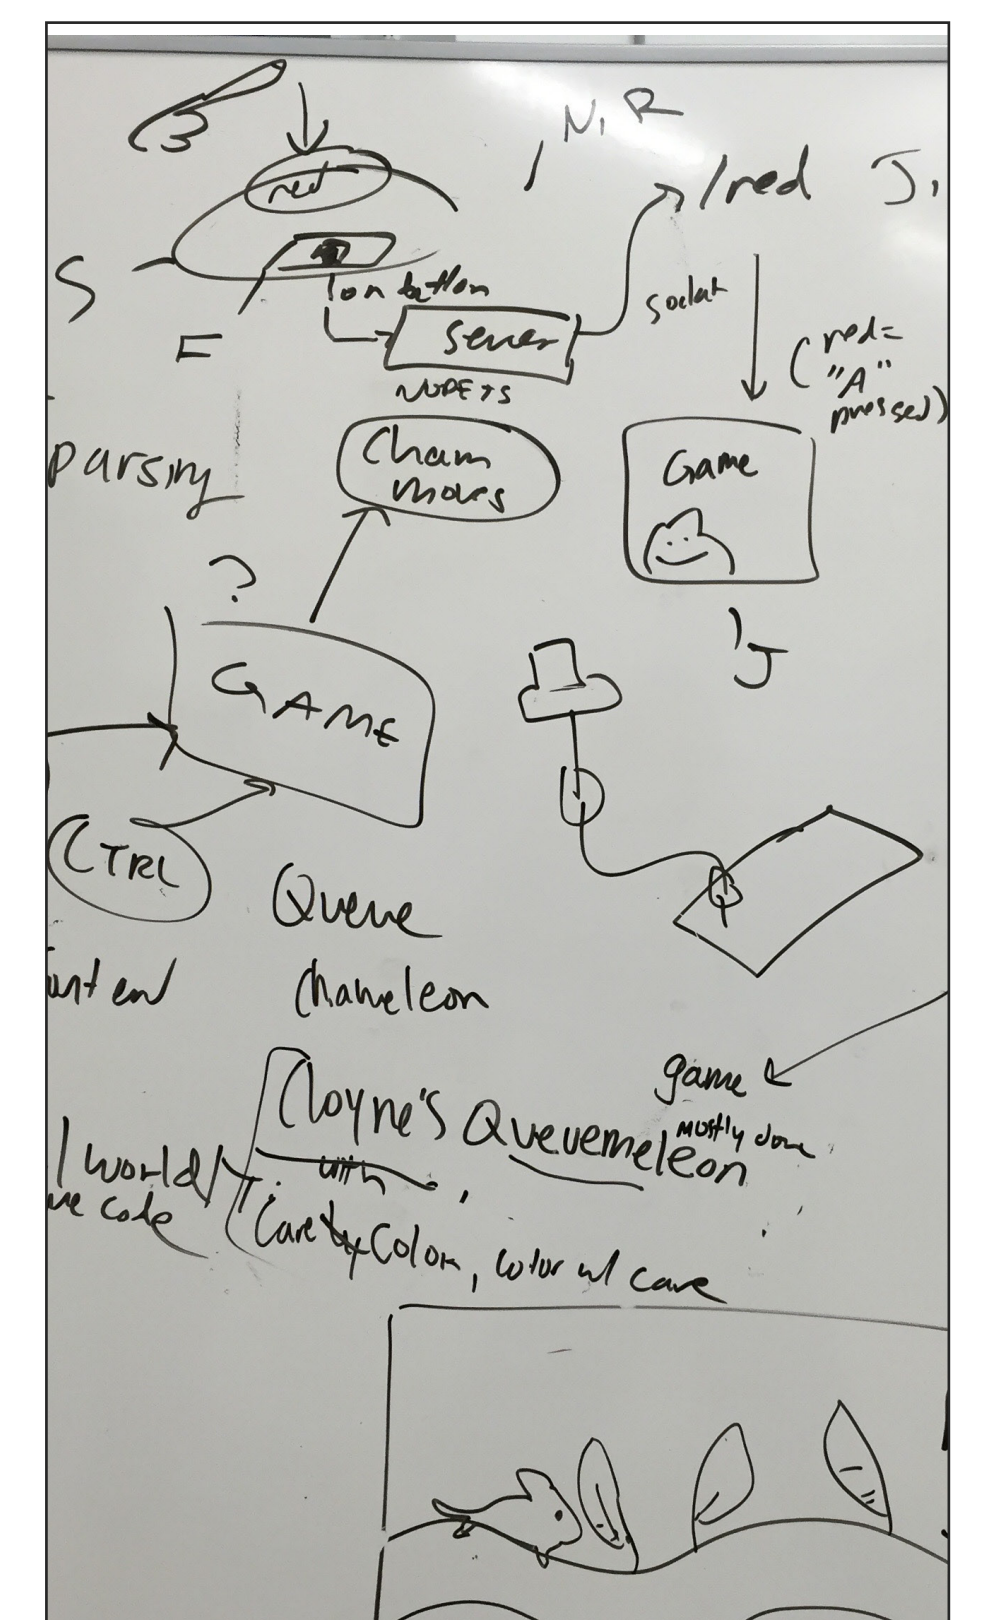 N, R
red
/red J,
S
on button
server
socket
F
(red=
"A"
pressed)
parsing
Cham
moves
Game
?
'J
GAME
CTRL
Queue
ont end
chameleon
game
mostly done
Cloyne's Queuemeleon
/ world/
with
ve code
Care by Color, color w/ care